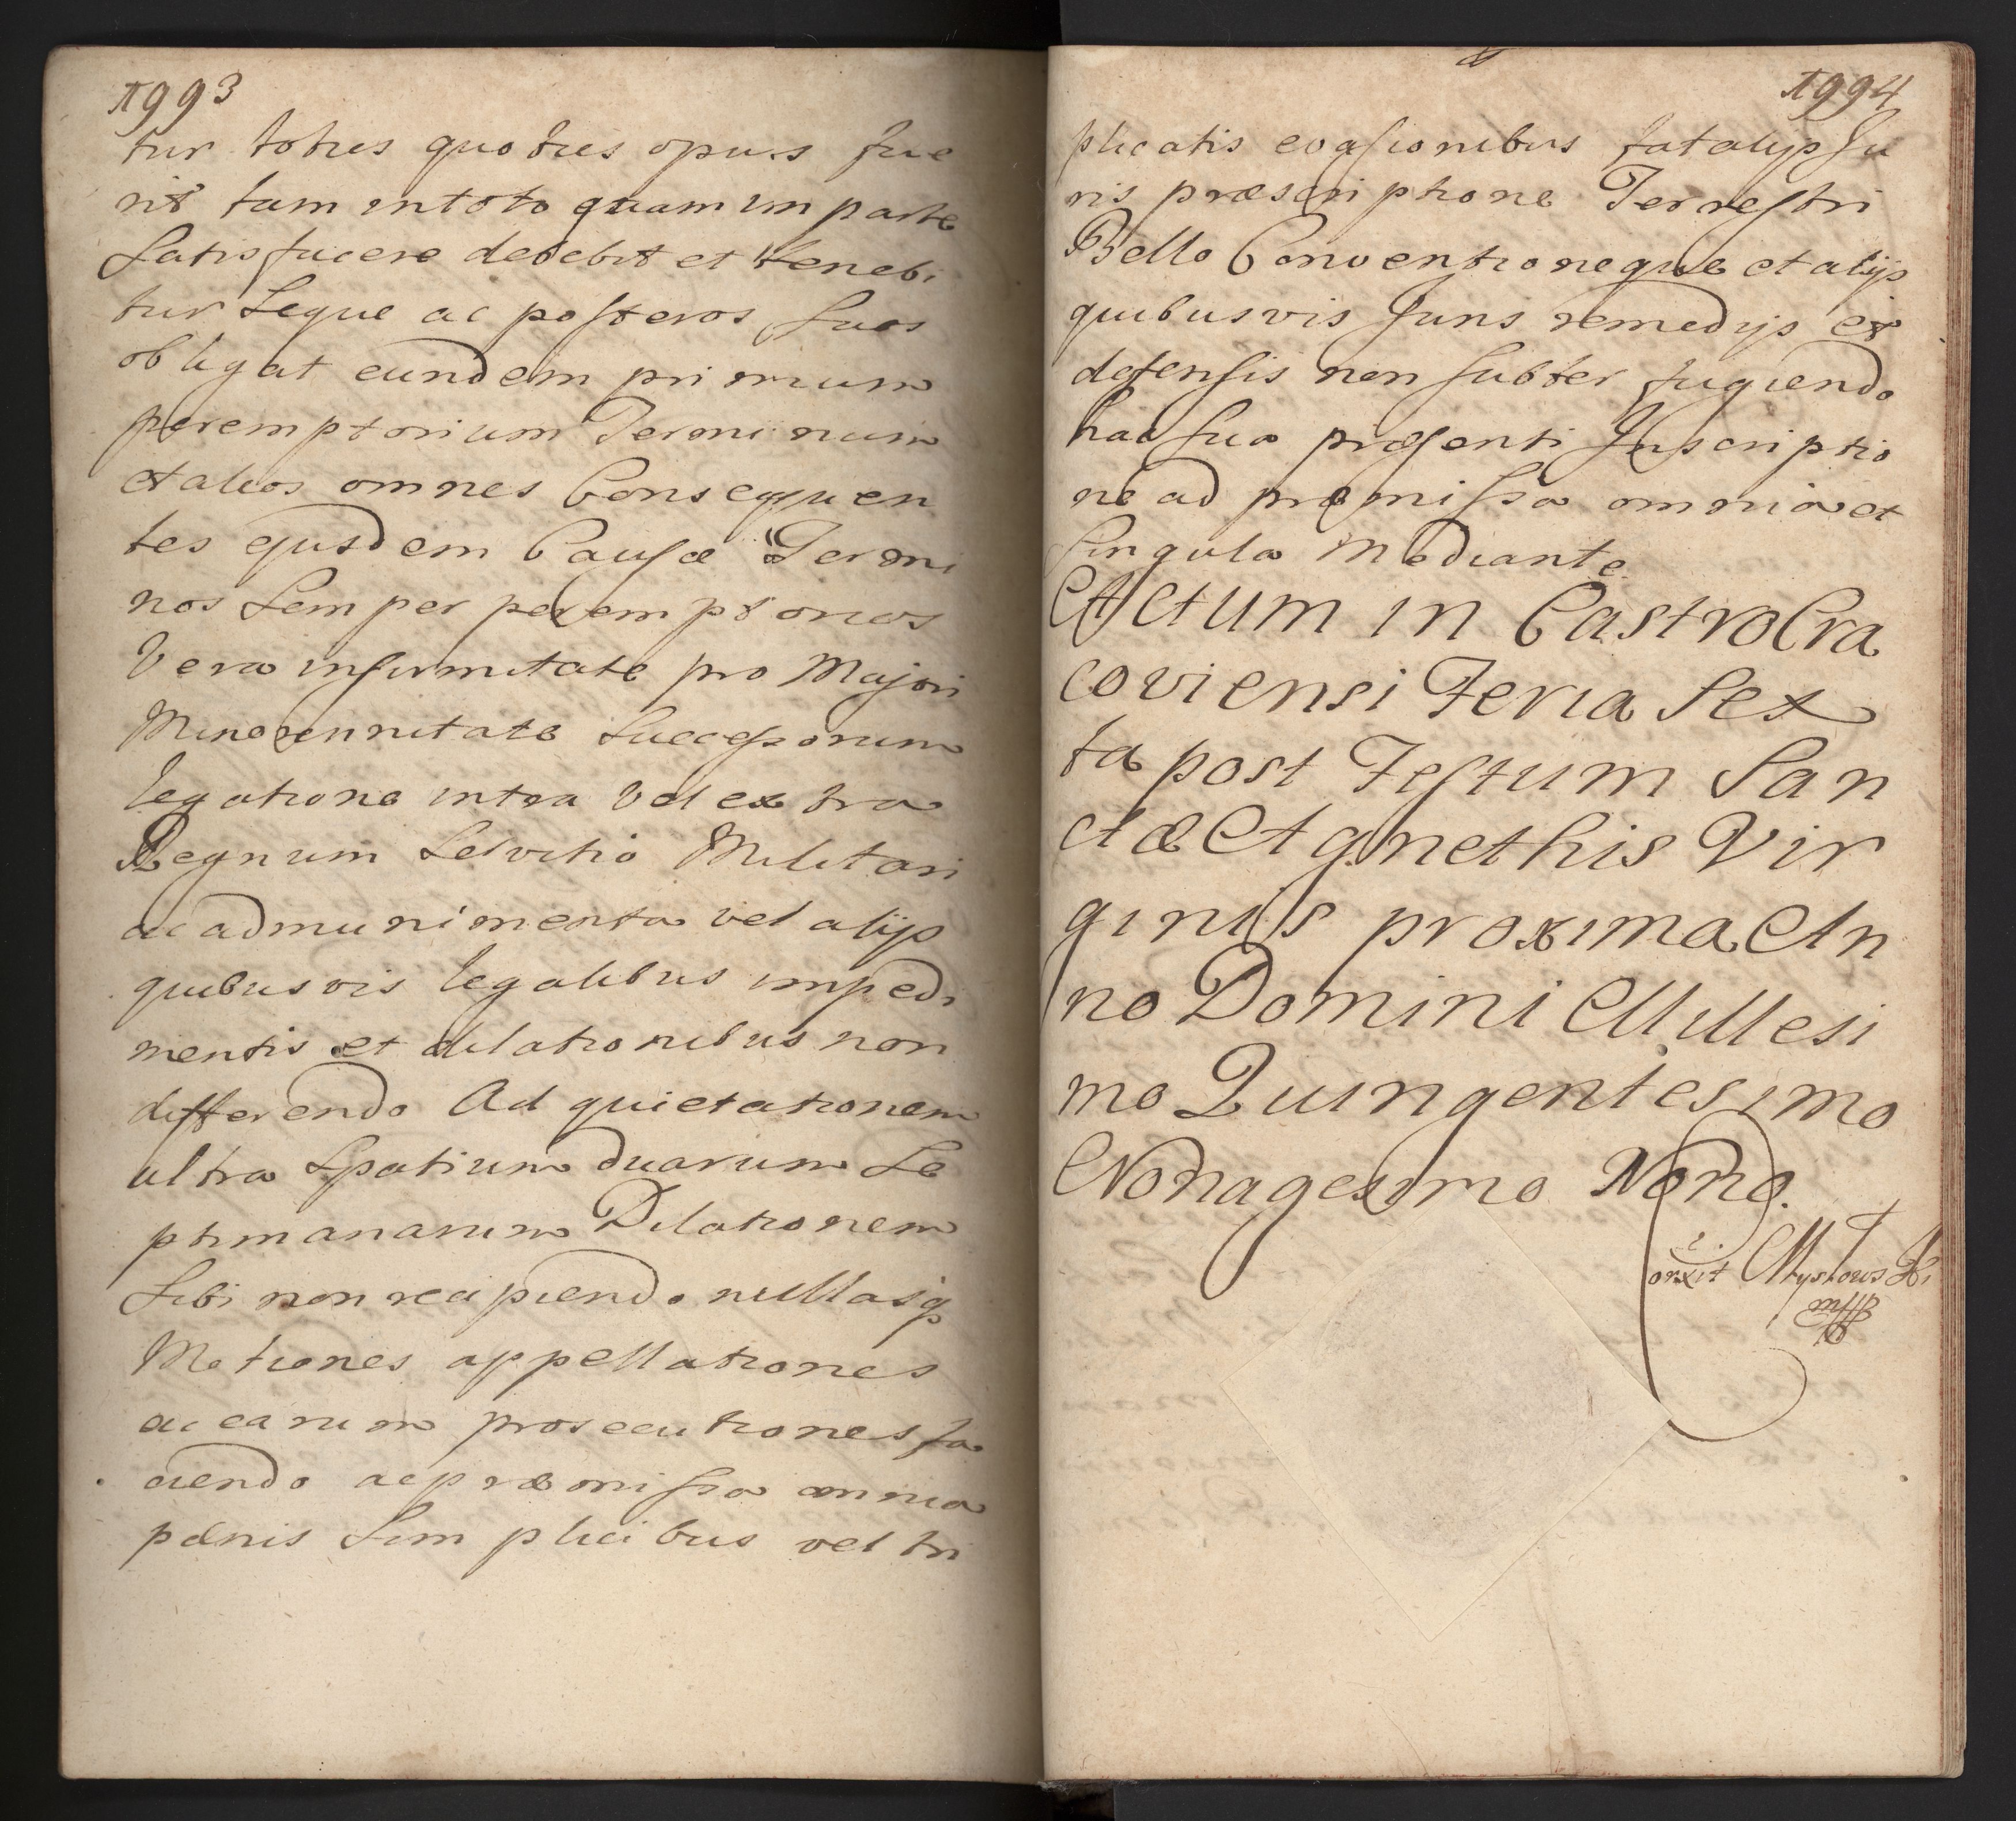 1993
tur toties quoties opus fue
rit tam in toto quam im parte
Satisfacere debebit et tenebi
tur Seque ac posteros suos
obligat eundem primum
peremptorium Terminum
et alios omnes Consequen
tes ejusdem Causæ Termi
nos Semper peremptorios
Vera infirmitate pro Majori
Minorennitate Successorum
legatione intra vel extra
Regnum Servitio Militari
ac admunimenta vel alijs
quibusvis legalibus impedi
mentis et dilationibus non
differendo Ad quietationem
ultra Spatium duarum Se
ptimanarum Dilationem
Sibi non recipiendo nullasq
Motiones appellationes
ac earum prosecutiones fa
ciendo ac præmissa omnia
pænis Simplicibus vel tri
1994
plicatis evasionibus fatalijs Ju
ris præscriptione Terrestri
Bello Conventioneque et alijs
quibusvis Juris remedijs et
defensis non subter fugiendo
hac sua præsenti Inscriptio
ne ad præmissa omnia et
singula Mediante
Actum in Castro Cra
coviensi Feria Sex
ta post Festum San
ctæ Agnethis Vir
ginis proxima An
no Domini Millesi
mo Quingentesimo
Nonagesimo Nono.